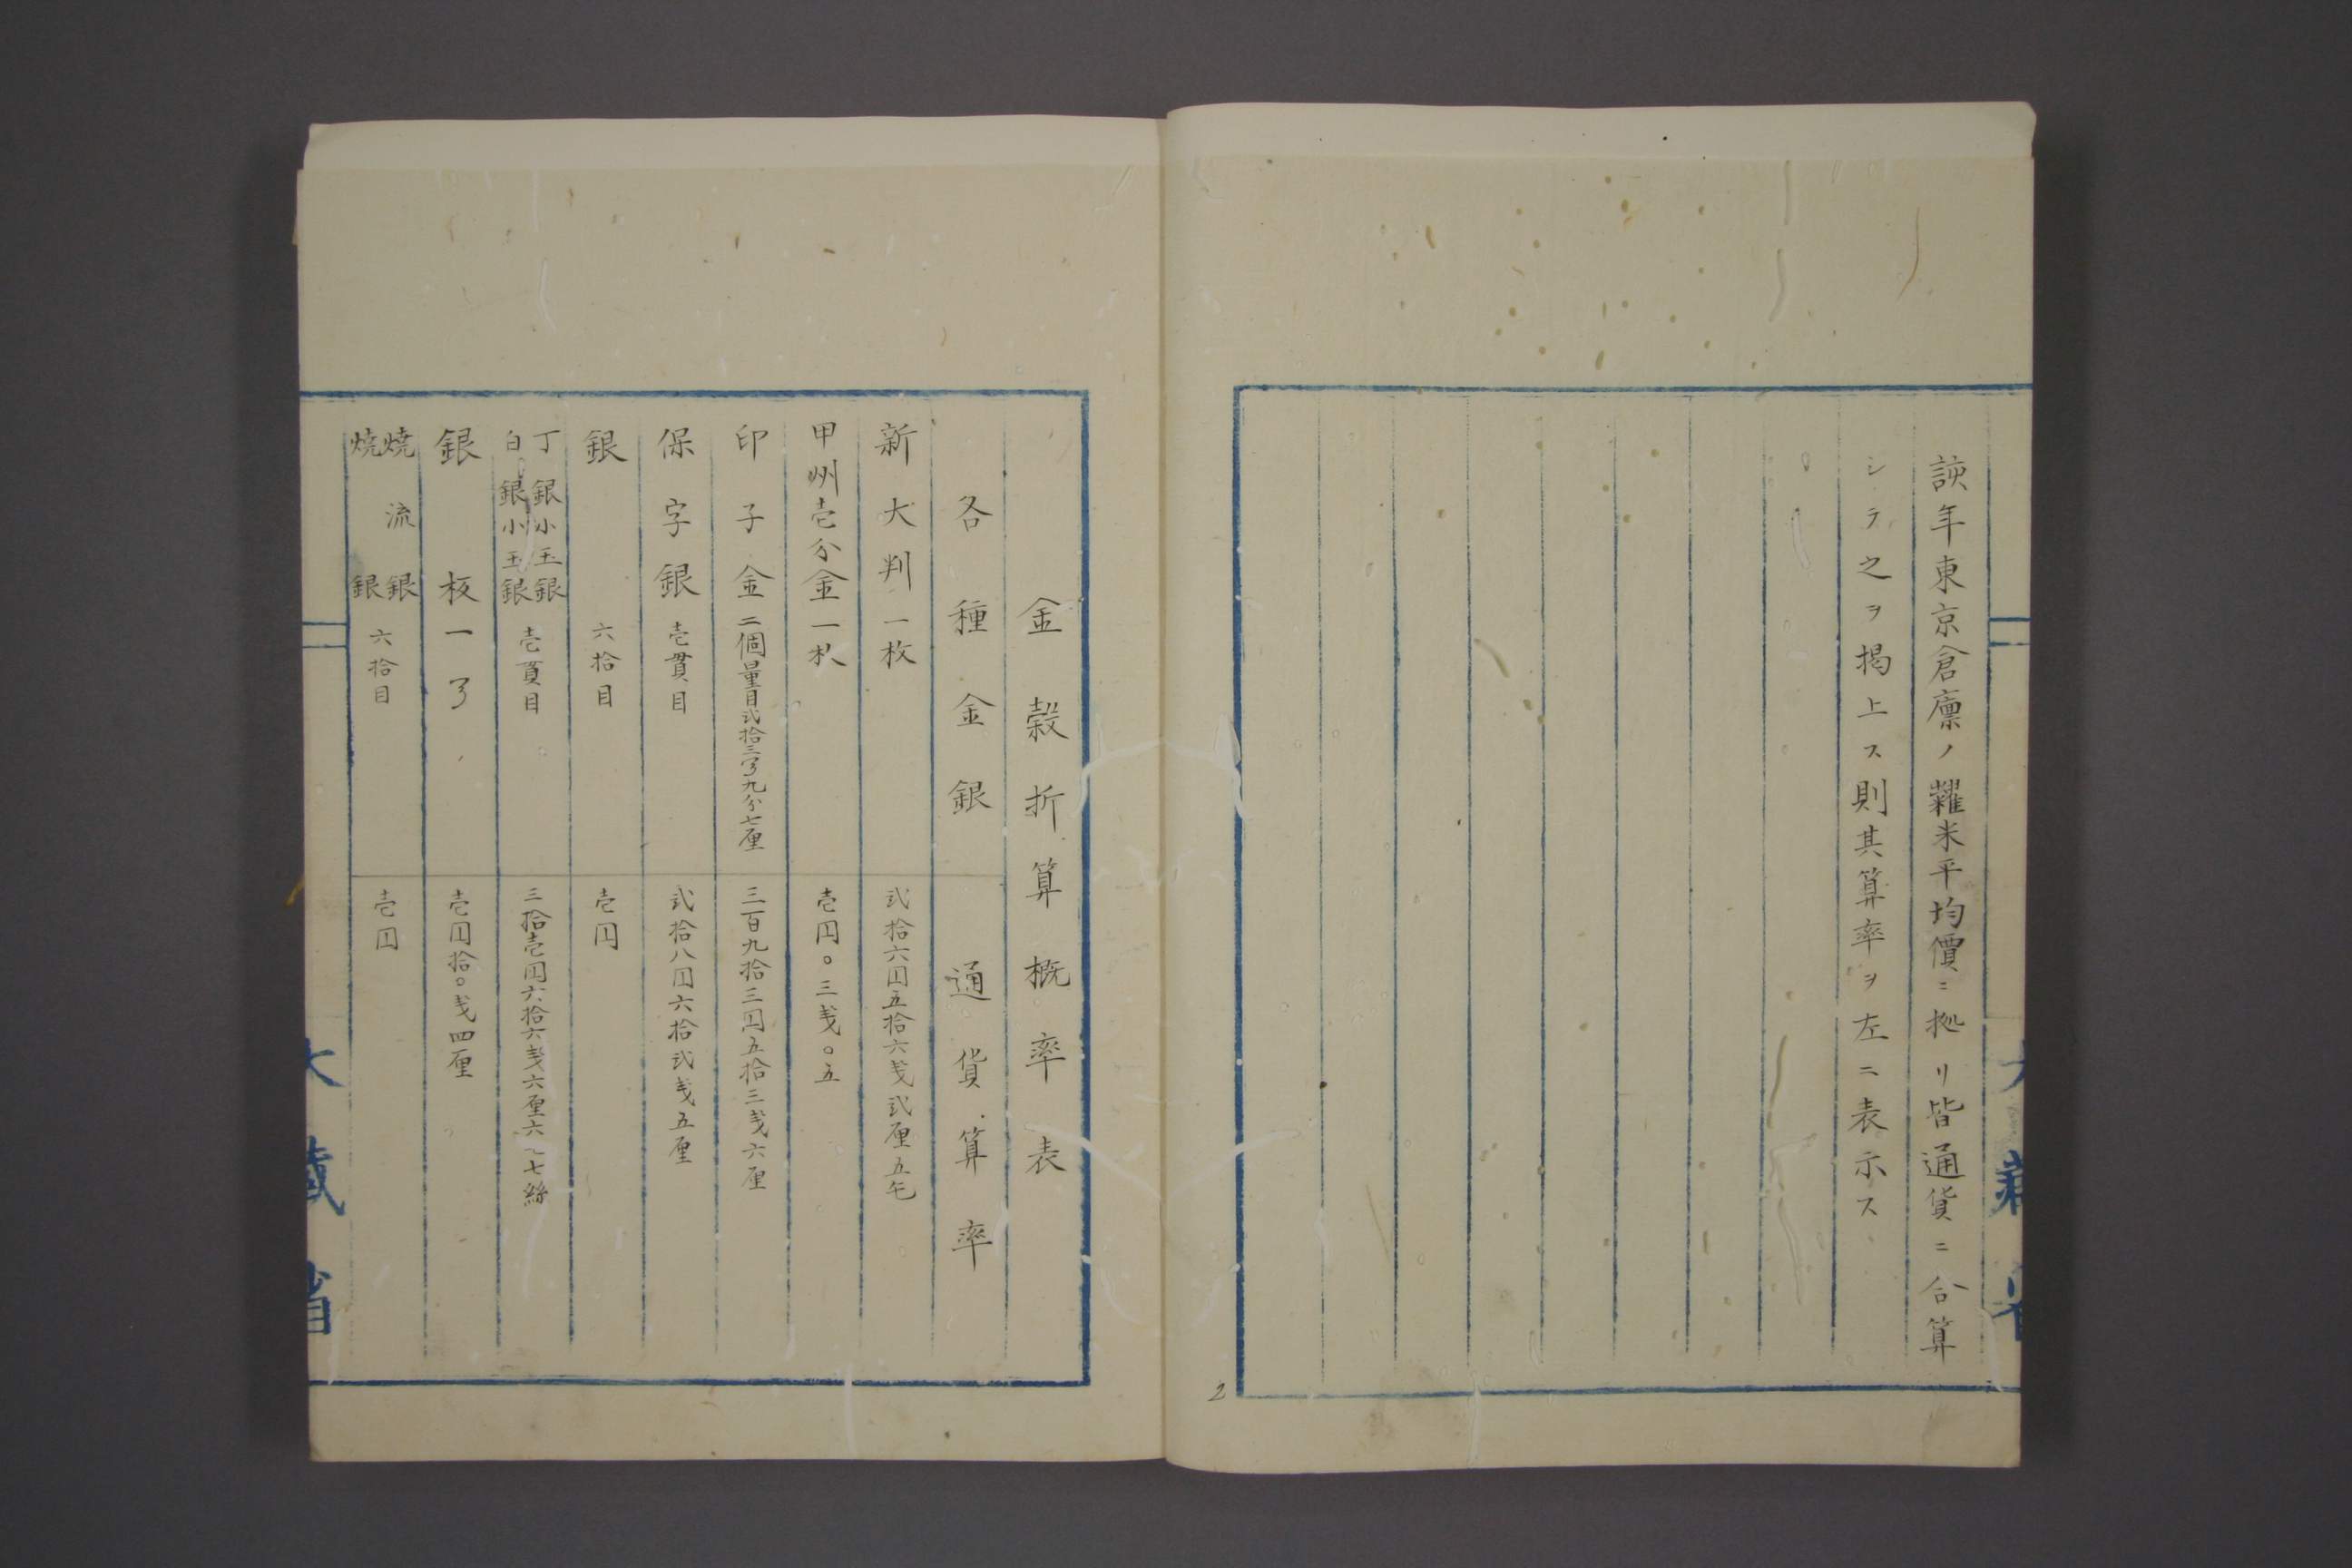 該年東京倉廩ノ糶米平均價ニ拠リ皆通貨ニ合算
シテ之ヲ掲上ス則其算率ヲ左ニ表示ス
大藏省
2
金穀折算概率表
各種金銀 通貨算率
新大判一枚 弐拾六円五拾六戋弐厘五毛
甲州壱分金一枚 壱円〇三戋〇五
印子金二個量目弐拾三匁九分七厘 三百九拾三円五拾三戋六厘
保字銀 壱貫目 弐拾八円六拾弐戋五厘
銀 六拾目 壱円
丁銀小玉銀
白銀小玉銀 壱貫目 三拾壱円六拾六戋六厘六毛七絲
銀板一匁 壱円拾〇戋四厘
焼流銀
焼銀 六拾目 壱円
大藏省